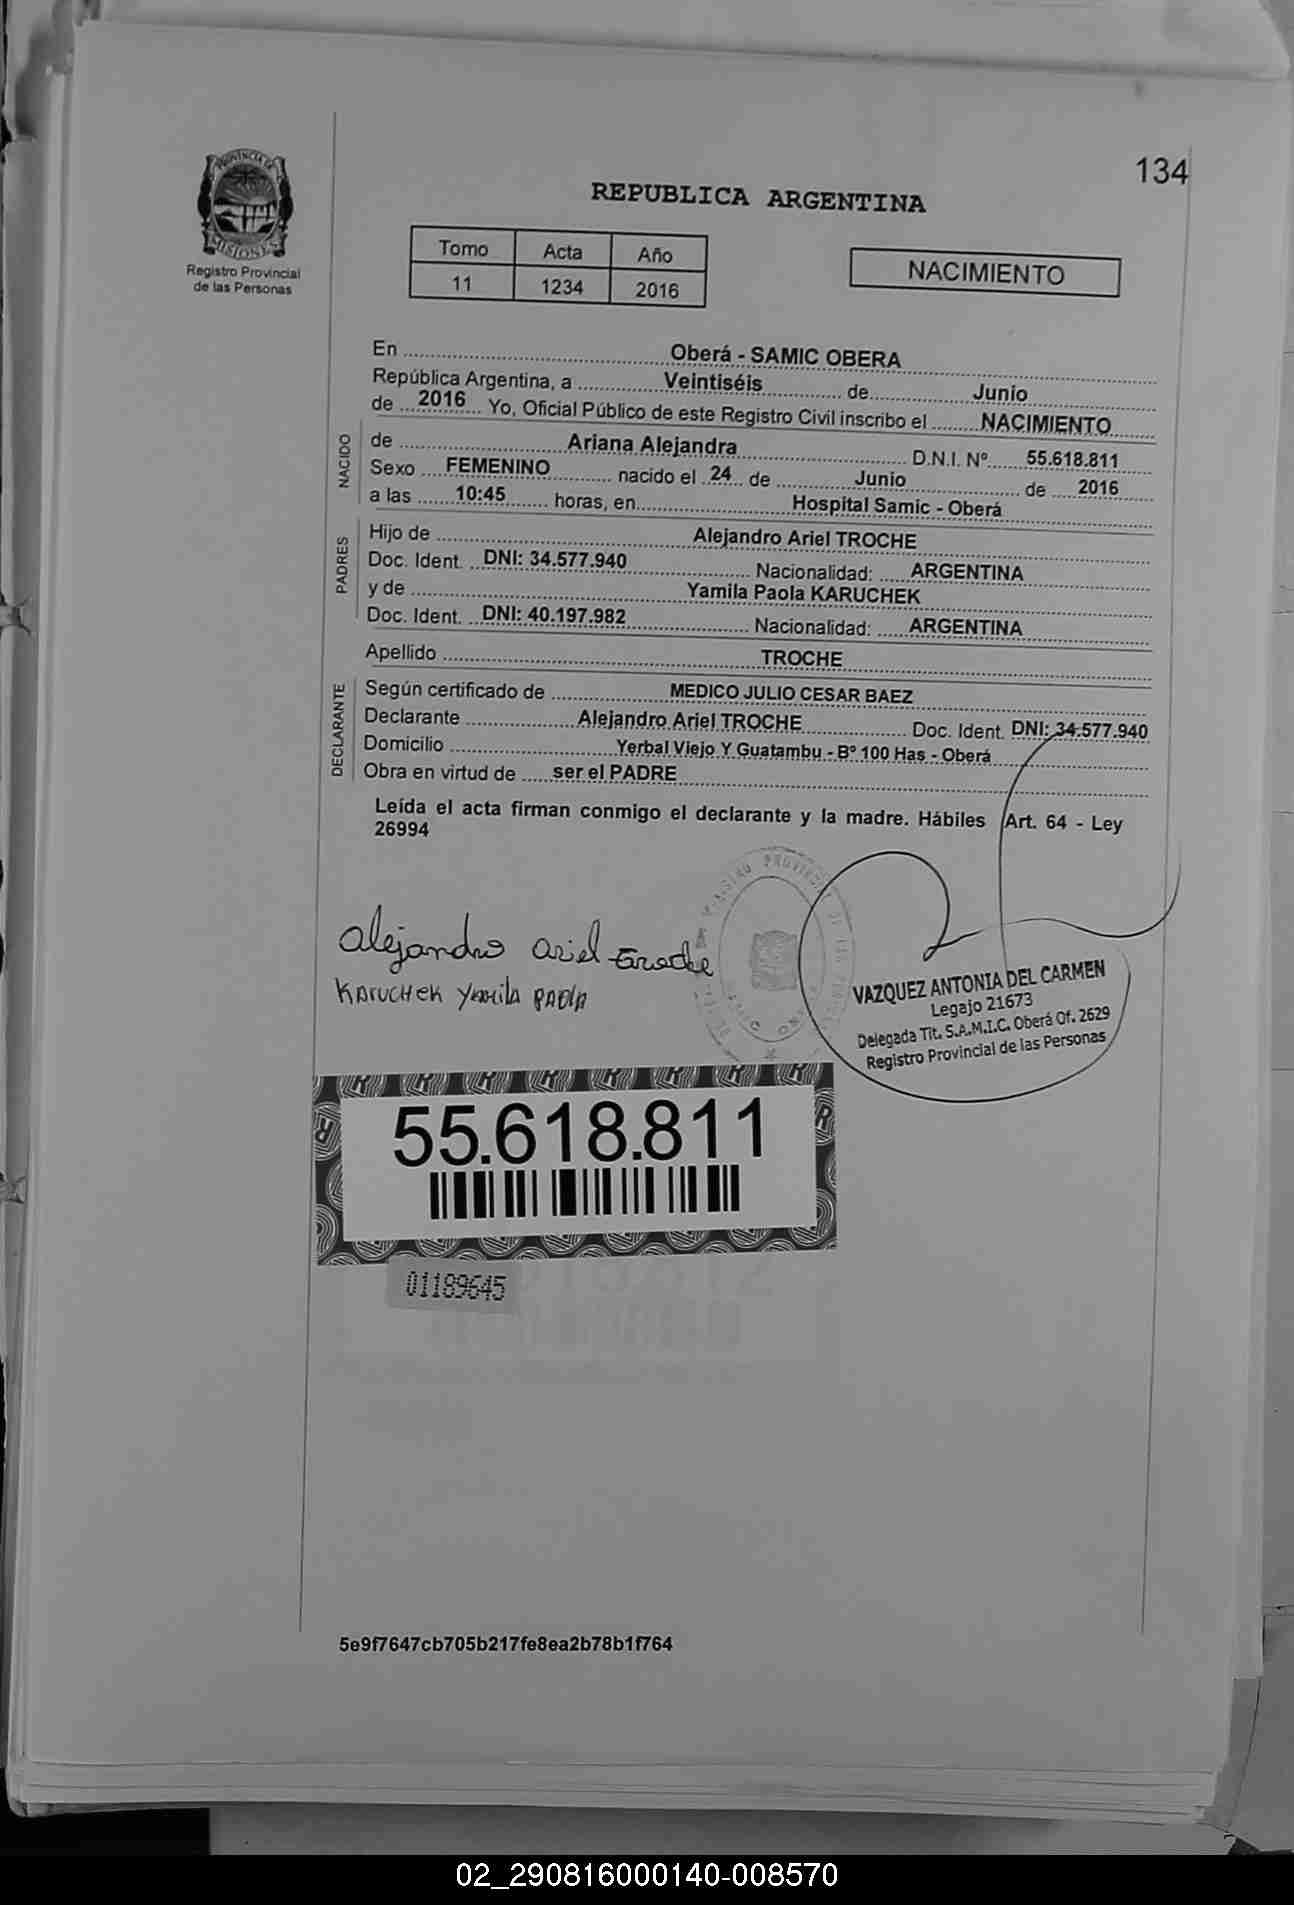 134
PROVINCIA DE
MISIONES
Registro Provincial
de las Personas
REPUBLICA ARGENTINA
Tomo Acta Año
11 1234 2016
NACIMIENTO
En Oberá - SAMIC OBERA
República Argentina, a Veintiséis de Junio
de 2016 Yo, Oficial Público de este Registro Civil inscribo el NACIMIENTO
NACIDO
de Ariana Alejandra D.N.I. Nº 55.618.811
Sexo FEMENINO nacido el 24 de Junio de 2016
a las 10:45 horas, en Hospital Samic - Oberá
PADRES
Hijo de Alejandro Ariel TROCHE
Doc. Ident. DNI: 34.577.940 Nacionalidad: ARGENTINA
y de Yamila Paola KARUCHEK
Doc. Ident. DNI: 40.197.982 Nacionalidad: ARGENTINA
Apellido TROCHE
DECLARANTE
Según certificado de MEDICO JULIO CESAR BAEZ
Declarante Alejandro Ariel TROCHE Doc. Ident. DNI: 34.577.940
Domicilio Yerbal Viejo Y Guatambu - Bº 100 Has - Oberá
Obra en virtud de ser el PADRE
Leída el acta firman conmigo el declarante y la madre. Hábiles Art. 64 - Ley
26994
Alejandro Ariel Troche
KARUCHEK YAMILA PAOLA
VAZQUEZ ANTONIA DEL CARMEN
Legajo 21673
Delegada Tit. S.A.M.I.C. Oberá Of. 2629
Registro Provincial de las Personas
55.618.811
01189645
5e9f7647cb705b217fe8ea2b78b1f764
02_290816000140-008570